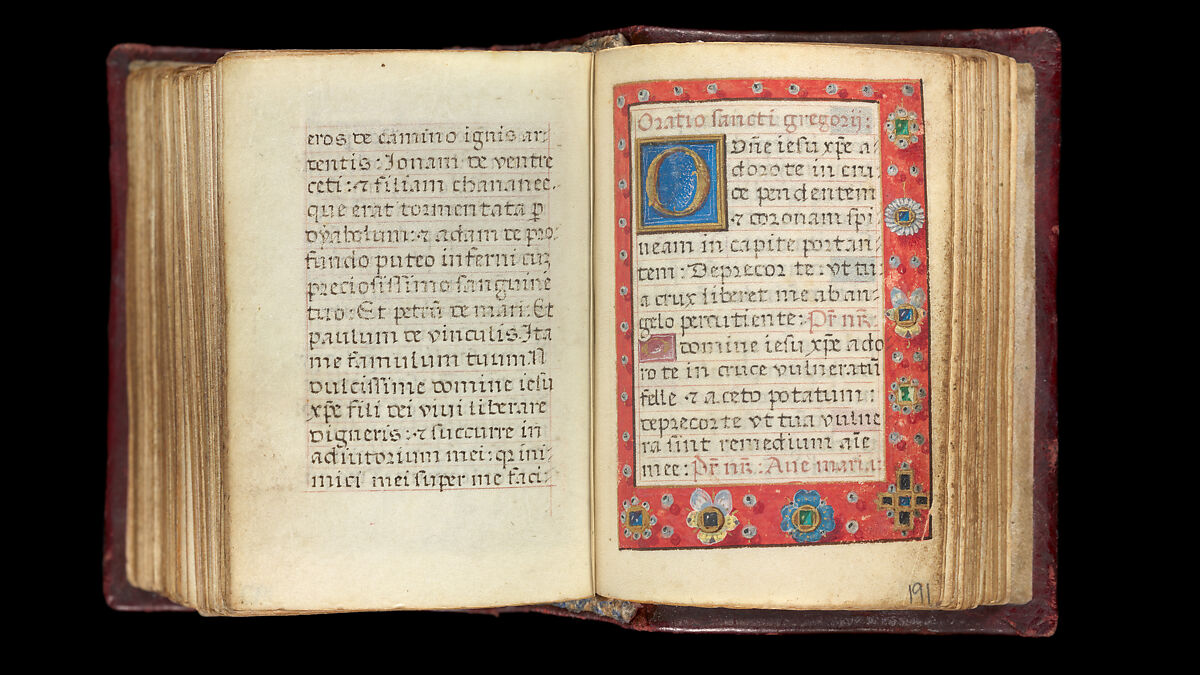 eros de camino ignis ar-
dentis: Jonam de ventre
ceti: ⁊ filiam chananee.
que erat tormentata p̄
dyabolum: ⁊ adam de pro-
fundo puteo inferni cuȝ
preciosissimo sanguine
tuo: Et petrū de mari: Et
paulum de vinculis. Ita
me famulum tuum N
dulcissime domine iesu
xp̄e fili dei viui liberare
digneris: ⁊ succurre in
adiutorium mei: qꝛ ini-
mici mei super me faci-
Oratio sancti gregorij:
O Dn̄e iesu xp̄e a-
doro te in cru
ce pendentem
⁊ coronam spi-
neam in capite portan-
tem: Deprecor te: vt tu-
a crux liberet me ab an-
gelo percutiente: Pr̄ nr̄.
O domine iesu xp̄e ado
ro te in cruce vulneratū
felle ⁊ aceto potatum:
deprecor te vt tua vulne
ra sint remedium aīe
mee: Pr̄ nr̄: Aue maria:
191